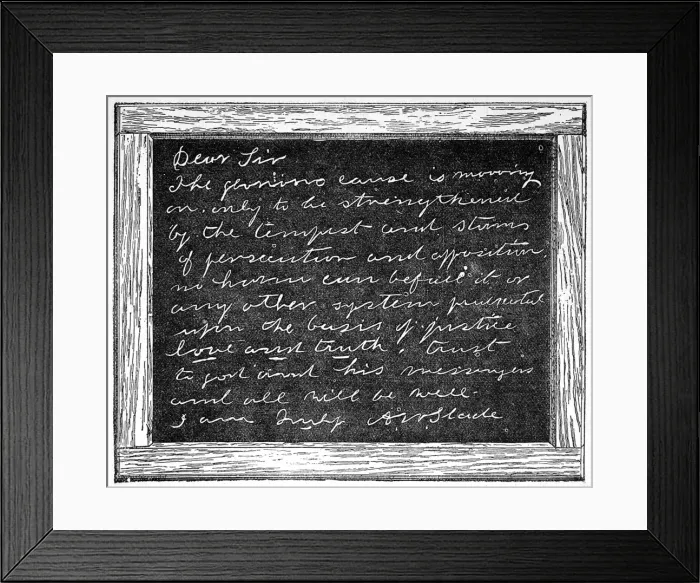 Dear Sir
The glorious cause is moving
on. only to be strengthened
by the tempest and storms
of persecution and opposition.
no harm can befall it or
any other system predicated
upon the basis of justice
love and truth. trust
to god and his messengers
and all will be well.
I am Truly AWSlade